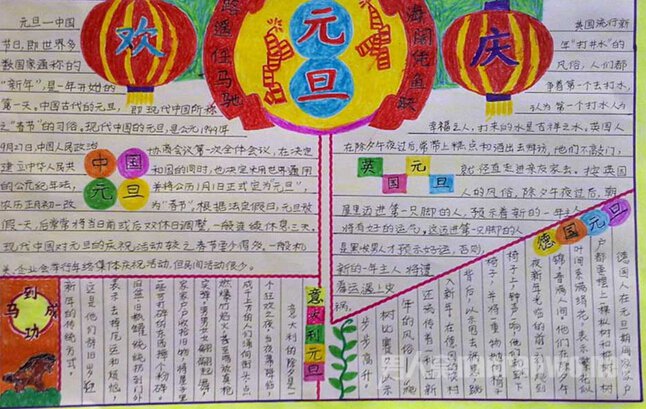 欢
元旦
庆
逍遥任马驰
海阔凭鱼跃
元旦—中国
节日,即世界多
数国家通称的
“新年”,是一年开始的
第一天。中国古代的元旦,即现代中国所称
之“春节”的习俗。现代中国的元旦,是公元1949年
9月27日,中国人民政治协商会议第一次全体会议,在决定
建立中华人民共和国的同时,也决定采用世界通用
的公元纪年法,并将公历1月1日正式定为“元旦”,
农历正月初一改为“春节”。根据法定假日,元旦放
假一天,后常常将当日前或后双休日调整,一般连续休息三天。
现代中国对元旦的庆祝活动较之春节要少得多,一般机
关、企业会举行年终集体庆祝活动,但民间活动很少。
中国
元旦
英国流行新
年“打井水”的
风俗,人们都
争着第一个去打水,
认为第一个打水人为
幸福之人,打来的水是吉祥之水。英国人
在除夕午夜过后,常带上糕点和酒出去拜访,他们不敲门,
就径直走进亲友家去。按英国
人的风俗,除夕午夜过后,朝
屋里迈进第一只脚的人,预示着新的一年
将有好的运气,
是黑发男人才预示好运,否则,
新的一年主人将遭
英国元旦
德国元旦
德国人在元旦期间,家家户
户都要摆上枞树和横树,
叶间系满绢花,表示繁花似
锦,春满人间。他们在除夕午
夜新年光临前一刻,
椅子上,钟声一响,他们就跳下
椅子,并将重物抛向椅
背后,以示甩去祸患,跳
入新年。在德国的农村
还流传着一种过新
年的风俗
树比赛,以示
步步高升。
意大利元旦
意大利的除夕是一
个狂欢之夜,当夜幕降临,
成千上万的人们涌向街头,点
燃爆竹和焰火,甚至鸣放真枪
实弹。男男女女翩翩起舞,
家家户户收拾旧物,将屋子里
些可打碎的东西摔个粉碎,
旧盆旧瓶罐统统扔到门外,
表示去掉厄运和烦恼,
这是他们辞旧岁迎
新年的传统方式。
马到成功